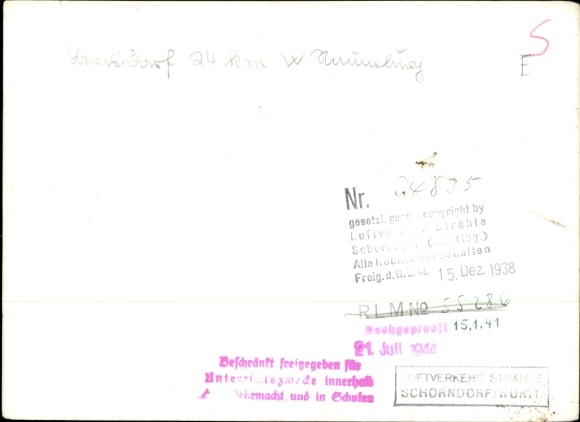 24 km W Naumburg
S
E
Nr. 24835
gesetzl. gesch. copyright by
Luftverkehr Strähle
Schorndorf (Württbg.)
Alle Rechte vorbehalten
Freig. d. R.L.M. 15. Dez. 1938
RLM No 55286
Nachgeprüft 15.1.41
21. Juli 1944
Beschränkt freigegeben für
Unterrichtszwecke innerhalb
Wehrmacht und in Schulen
LUFTVERKEHR STRÄHLE
SCHORNDORF/WÜRTT.